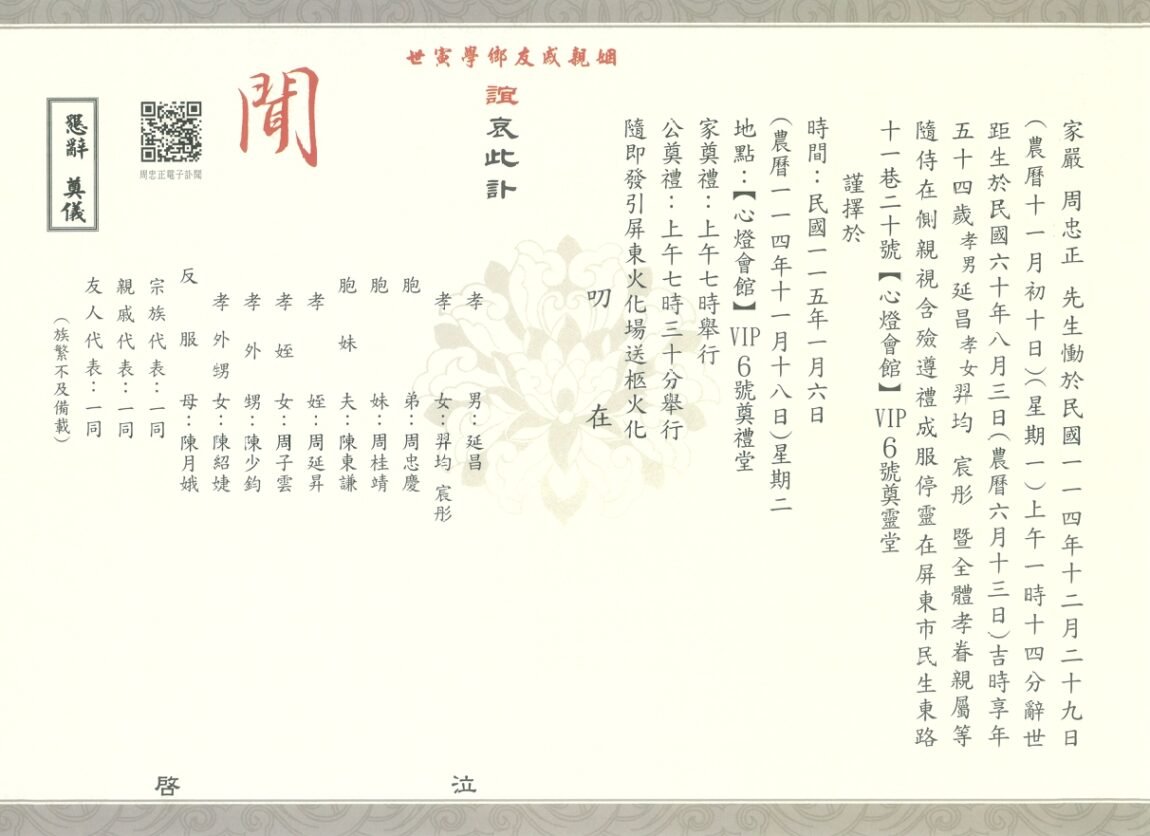 家嚴 周忠正 先生慟於民國一一四年十二月二十九日
(農曆十一月初十日)(星期一)上午一時十四分辭世
距生於民國六十年八月三日(農曆六月十三日)吉時享年
五十四歲孝男延昌孝女羿均 宸彤 暨全體孝眷親屬等
隨侍在側親視含殮遵禮成服停靈在屏東市民生東路
十一巷二十號【心燈會館】VIP6號奠靈堂
謹擇於
時間：民國一一五年一月六日
(農曆一一四年十一月十八日)星期二
地點：【心燈會館】VIP6號奠禮堂
家奠禮：上午七時舉行
公奠禮：上午七時三十分舉行
隨即發引屏東火化場送柩火化
叨在
姻親戚友鄉學寅世
誼哀此訃
聞
孝男：延昌
孝女：羿均 宸彤
胞弟：周忠慶
胞妹：周桂靖
胞妹夫：陳東謙
孝姪：周延昇
孝姪女：周子雲
孝外甥：陳少鈞
孝外甥女：陳紹婕
反服母：陳月娥
宗族代表：一同
親戚代表：一同
友人代表：一同
(族繁不及備載)
泣啓
周忠正電子訃聞
懇辭 奠儀